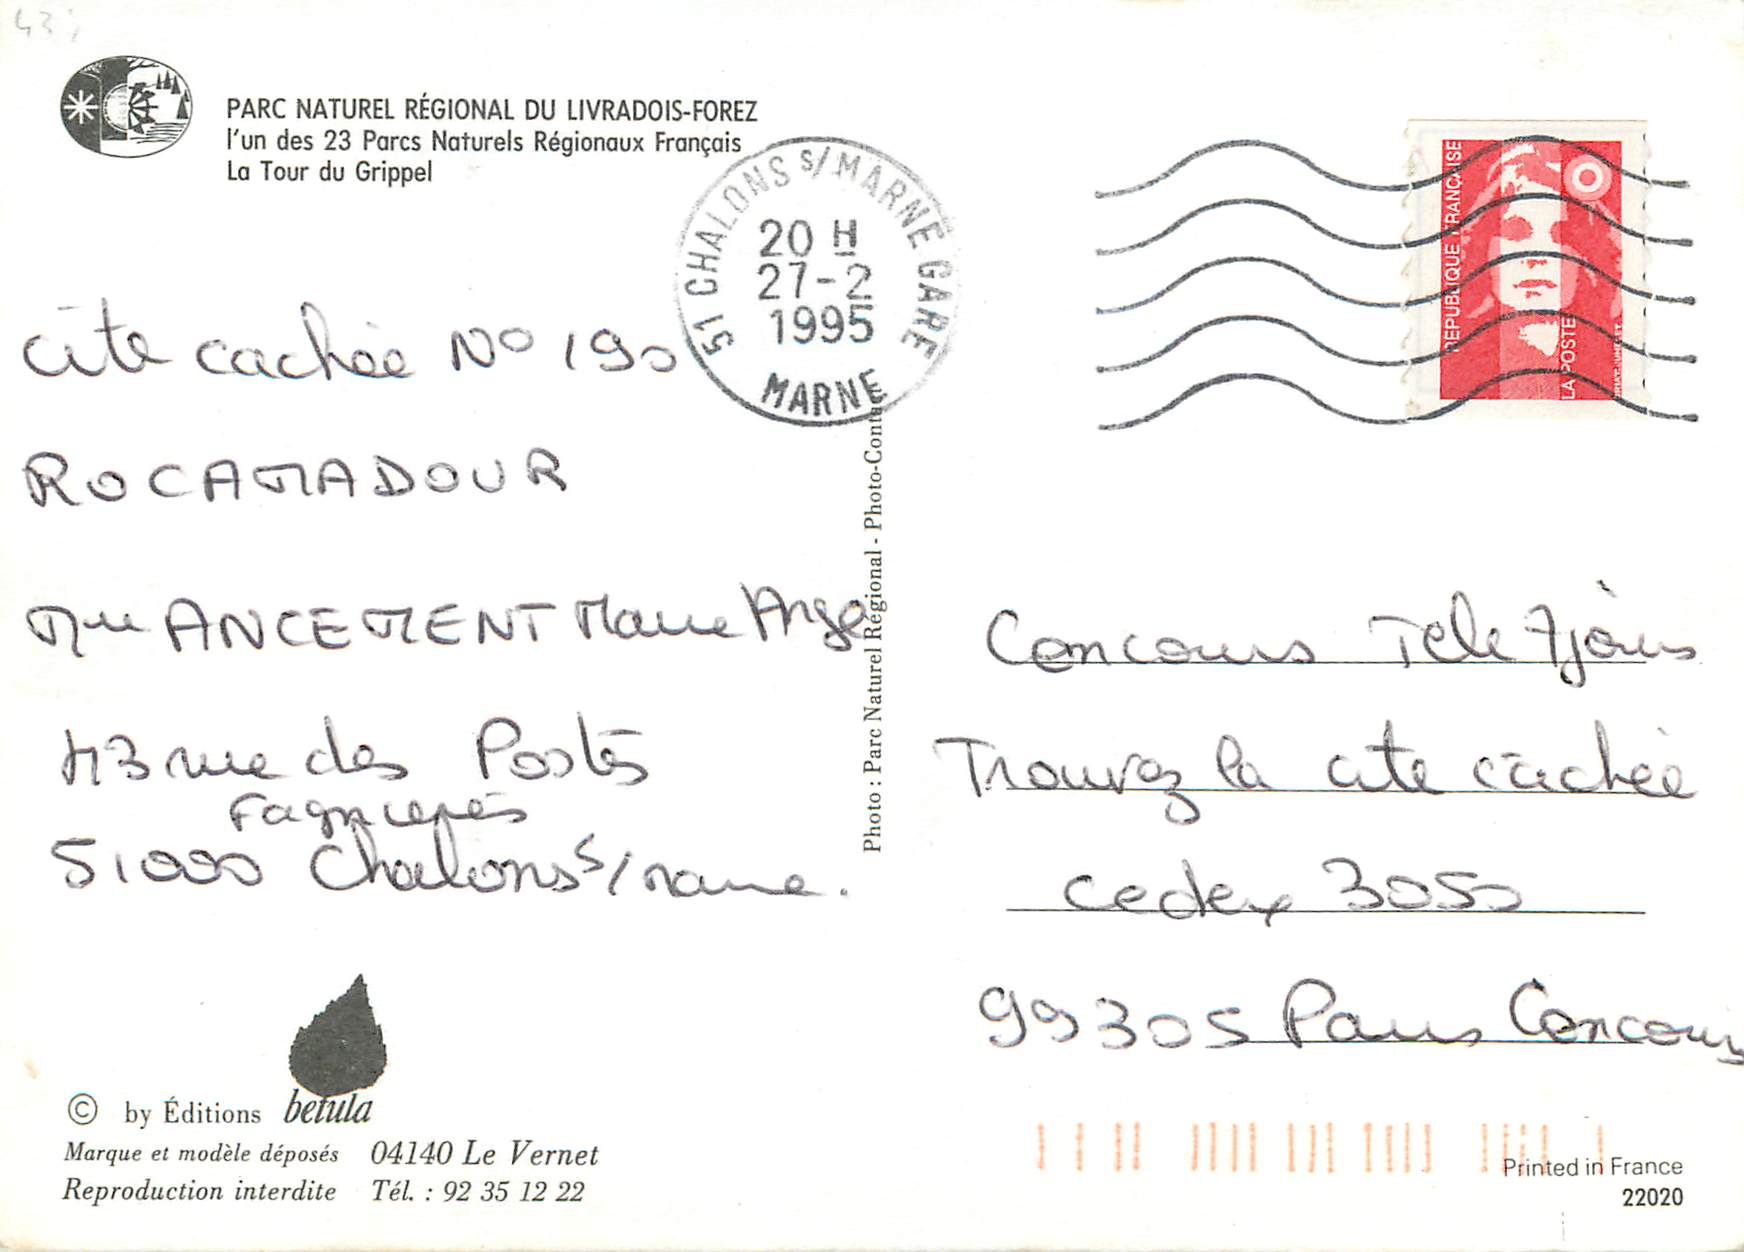 43
PARC NATUREL RÉGIONAL DU LIVRADOIS-FOREZ
l'un des 23 Parcs Naturels Régionaux Français
La Tour du Grippel
51 CHALONS S/MARNE GARE
20 H
27-2
1995
MARNE
RÉPUBLIQUE FRANÇAISE
LA POSTE
cité cachée N° 190
ROCAMADOUR
Mme ANCEMENT Marie Ange
43 rue des Postes
Fagnieres
51000 Chalons s/marne.
Photo : Parc Naturel Régional - Photo-Contact
Concours Télé 7 jours
Trouvez la cité cachée
cedex 3050
99305 Paris Concours
© by Éditions betula
Marque et modèle déposés 04140 Le Vernet
Reproduction interdite Tél. : 92 35 12 22
Printed in France
22020